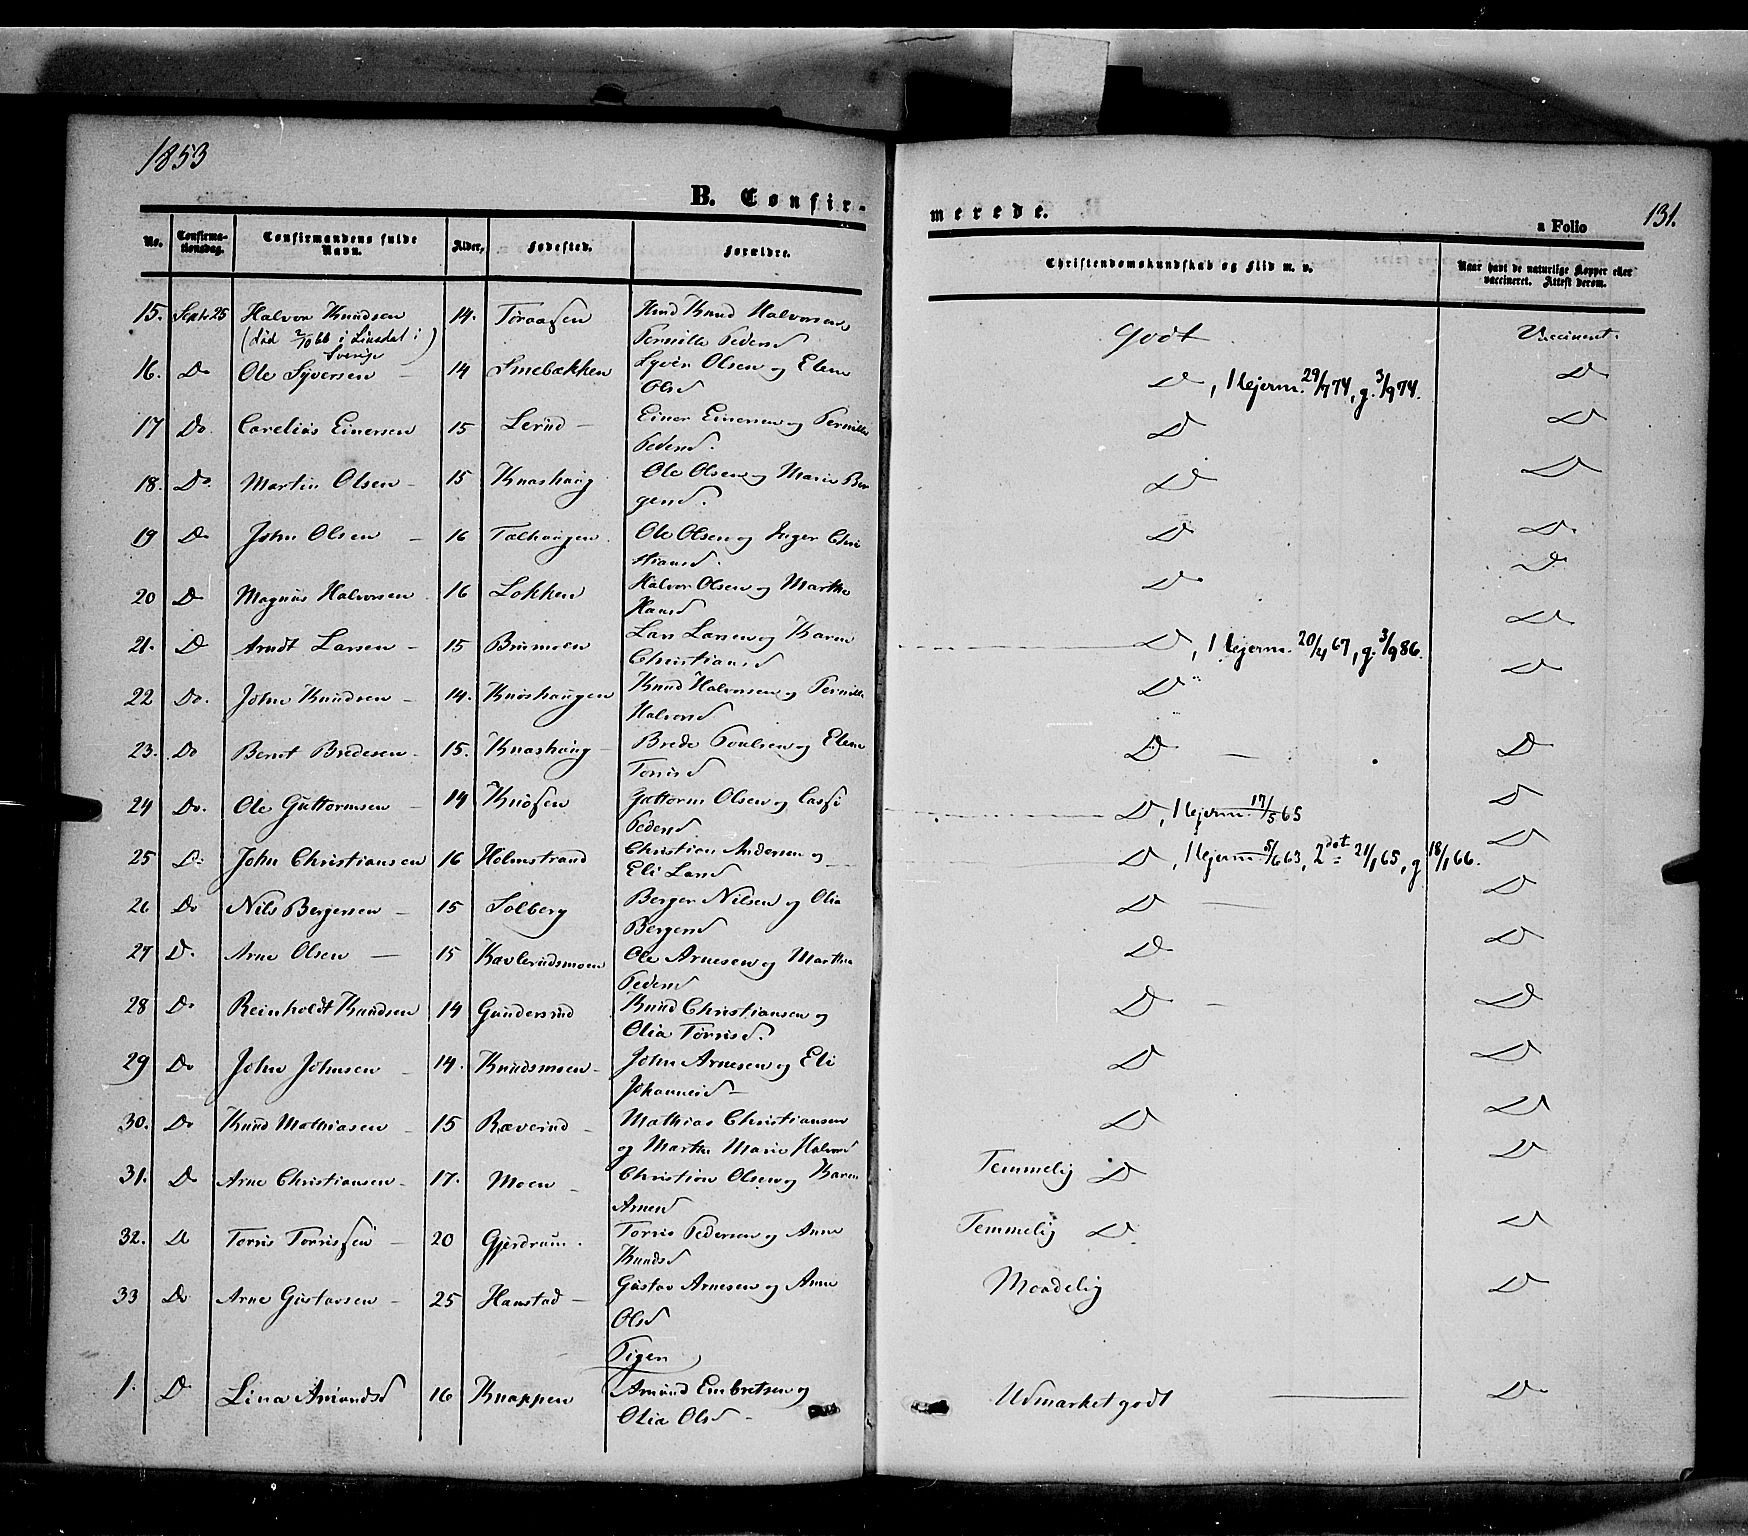 1853
B. Confir-
merede.
131.
a Folio
No. Confirma-tionsdag. Confirmandens fulde Navn. Alder, Fødested. Forældre. Christendomskundskab og Flid m. v. Naar havt de naturlige Kopper eller vaccineret. Attest derom.
15. Septr 25 Halvor Knudsen 14. Toraasen Knud Halvorsen Godt Vaccineret.
(død 2/10 66 i Pernille Pedersd
Sverige
16. Do Ole Syversen 14 Smebækken Syver Olsen og Elene D, Hjerm. 29/7 74, g. 3/9 74. D
Olsd
17 Do. Carelius Einersen 15 Lerud Einer Einersen og Pernille D D
Pedersd.
18. Do. Martin Olsen 15 Knashaug Ole Olsen og Marie Ber D D
gersd.
19 Do John Olsen 16 Talhaugen. Ole Olsen og Inger Chri D D
stiansd.
20 D Magnus Halvorsen 16 Løkken Halvor Olsen og Marthe D D
Hansd
21. D Arndt Larsen 15 Brumoen Lars Larsen og Karen D, Hjerm. 20/4 67, g. 3/9 86. D
Christiansd
22 Do. John Knudsen 14. Knashaugen Knud Halvorsen og Pernille D D
Halvorsd
23. Do Bernt Bredesen 15. Knashaug Brede Poulsen og Elene D D
Torrisd
24 Do. Ole Guttormsen 14 Guttorm Olsen og D, Hjerm. 17/5 65 D
Pedersd
25 D: John Christiansen 16 Holmstrand Christian Andersen og D, Hjerm 5/6 63, 2det 21/1 65, g 18/1 66. D
Eli Larsd
26 Do Nils Bergersen 15 Solberg Berger Nilsen og Olia D D
Bergersd
27 D. Arne Olsen 15 Kavlerudsmoen Ole Arnesen og Marthe D D
Pedersd
28 Do Reinholdt Knudsen 14 Gundersrud Knud Christiansen og D D
Olia Torrisd.
29 Do John Johnsen 14. Knudsmoen John Arnesen og Eli D D
Johannesd
30. Do Knud Mathiasen 15 Ræverud Mathias Christiansen D D
og Marthe Marie Halvorsd
31. D Arne Christiansen 17. Moen Christian Olsen og Karen Temmelig D D
Arnesd
32. D Torris Torrissen 20 Gjerdrum. Torris Pedersen og Anne Temmelig D. D
Knudsd
33 Do Arne Gustavsen 25 Hanstad Gustav Arnesen og Anne Maadelig D
Olsd
Piger
1. D Lina Amundsd 16 Knappen Amund Embretsen og Udmærket godt D
Olia Olsd